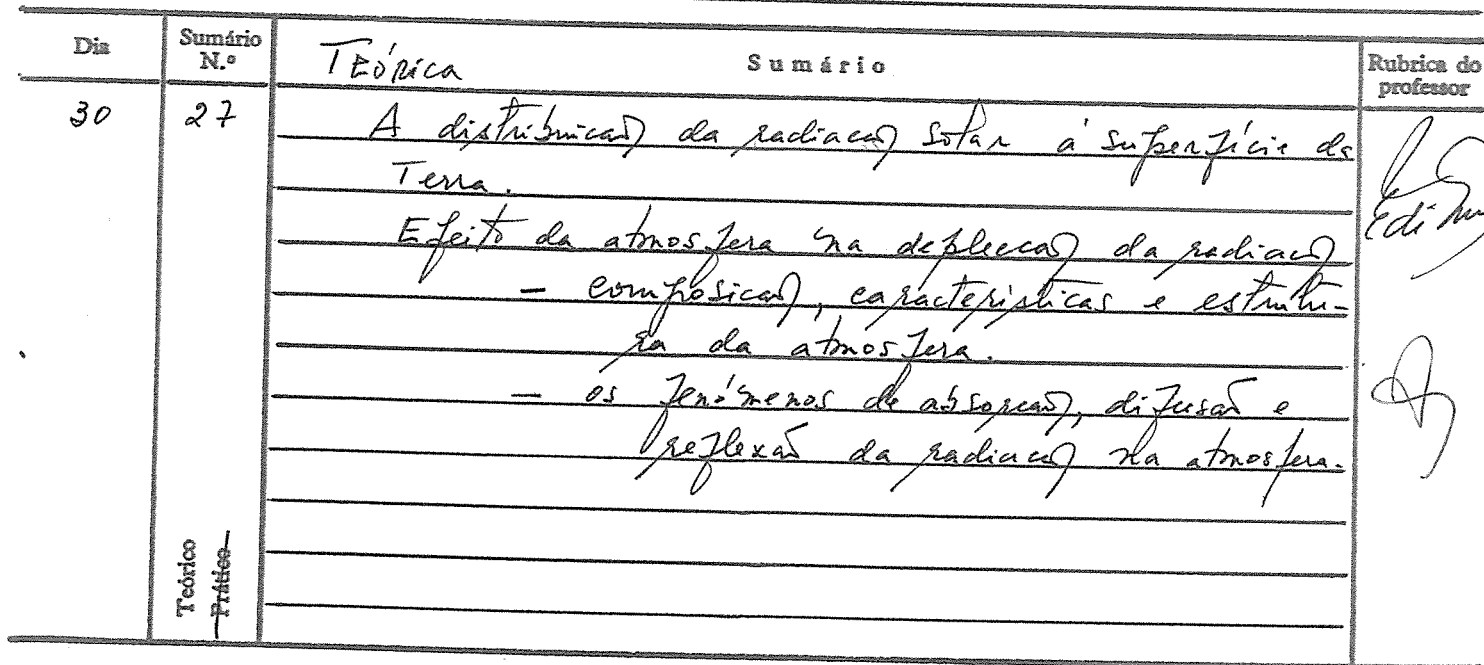 Dia
Sumário N.º
TEÓRICA
Sumário
Rubrica do professor
30
27
A distribuição da radiação solar à superfície da
Terra.
Efeito da atmosfera na depleção da radiação
– composição, características e estrutu-
ra da atmosfera.
– os fenómenos de absorção, difusão e
reflexão da radiação na atmosfera.
Teórico
Prático